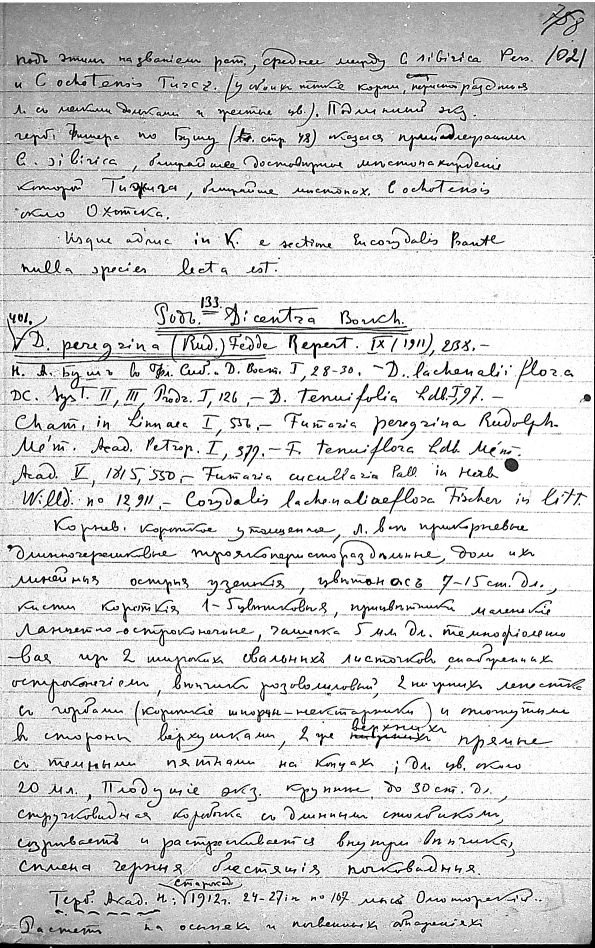 758
1021
подъ этимъ названіемъ раст., среднее между C sibirica Pers.
и C ochotensis Turcz. (у обоихъ корни,
л. съ мелкими дольками и желтые цв.). Подлинный экз.
герб. Фишера по Бушу (стр. 48) оказался принадлежащимъ
C. sibirica, ближайшее достовѣрное мѣстонахожденіе
которой Тигиль, ближайшее мѣстонах. C ochotensis
около Охотска.
Usque adhuc in K. e sectione Eucorydalis Prantl
nulla species lecta est.
Родъ. 133. Dicentra Borkh.
401.
D. peregrina (Rud.) Fedde Repert. IX (1911), 238.–
Н. А. Бушъ во Фл. Сиб. и Д. Вост. I, 28-30.– D. lachenaliiflora
DC. Syst. II, III, Prodr. I, 126,– D. tenuifolia Ldb. I, 97.–
Cham. in Linnaea I, 556,– Fumaria peregrina Rudolph.
Mém. Acad. Petrop. I, 379.– F. tenuiflora Ldb Mém.
Acad V, 1815, 550,– Fumaria cucullaria Pall in Herb
Willd. no 12,911.– Corydalis lachenaliaeflora Fischer in litt.
Корнев. короткое утолщенное, л. всѣ прикорневые
длинночерешковые троякоперисторазд​ѣльные, доли ихъ
линейныя острыя узенькія, цвѣтоносъ 7–15 см. дл.,
кисти короткія 1-5 цвѣтковыя, прицвѣтники маленькіе
ланцетно-остроконечные, чашечка 5 мм дл. темнофіолето
вая изъ 2 широкихъ овальныхъ листочковъ, снабженныхъ
остроконечіемъ, вѣнчикъ розоволиловый, 2 наружныхъ лепестка
съ горбами (короткіе шпорцы-нектарники) и отогнутыми
въ стороны верхушками, 2 же верхнихъ прямые
съ темными пятнами на концахъ; дл. цв. около
20 мм., Плодущіе экз. крупнѣе до 30 см. дл.,
стручковидная коробочка съ длиннымъ столбикомъ,
созрѣваетъ и растрескивается внутри вѣнчика,
сѣмена черныя блестящія почковидныя.
Герб. Акад. Н.: 1912 г. 24-27 no 107
Растетъ на осыпяхъ и